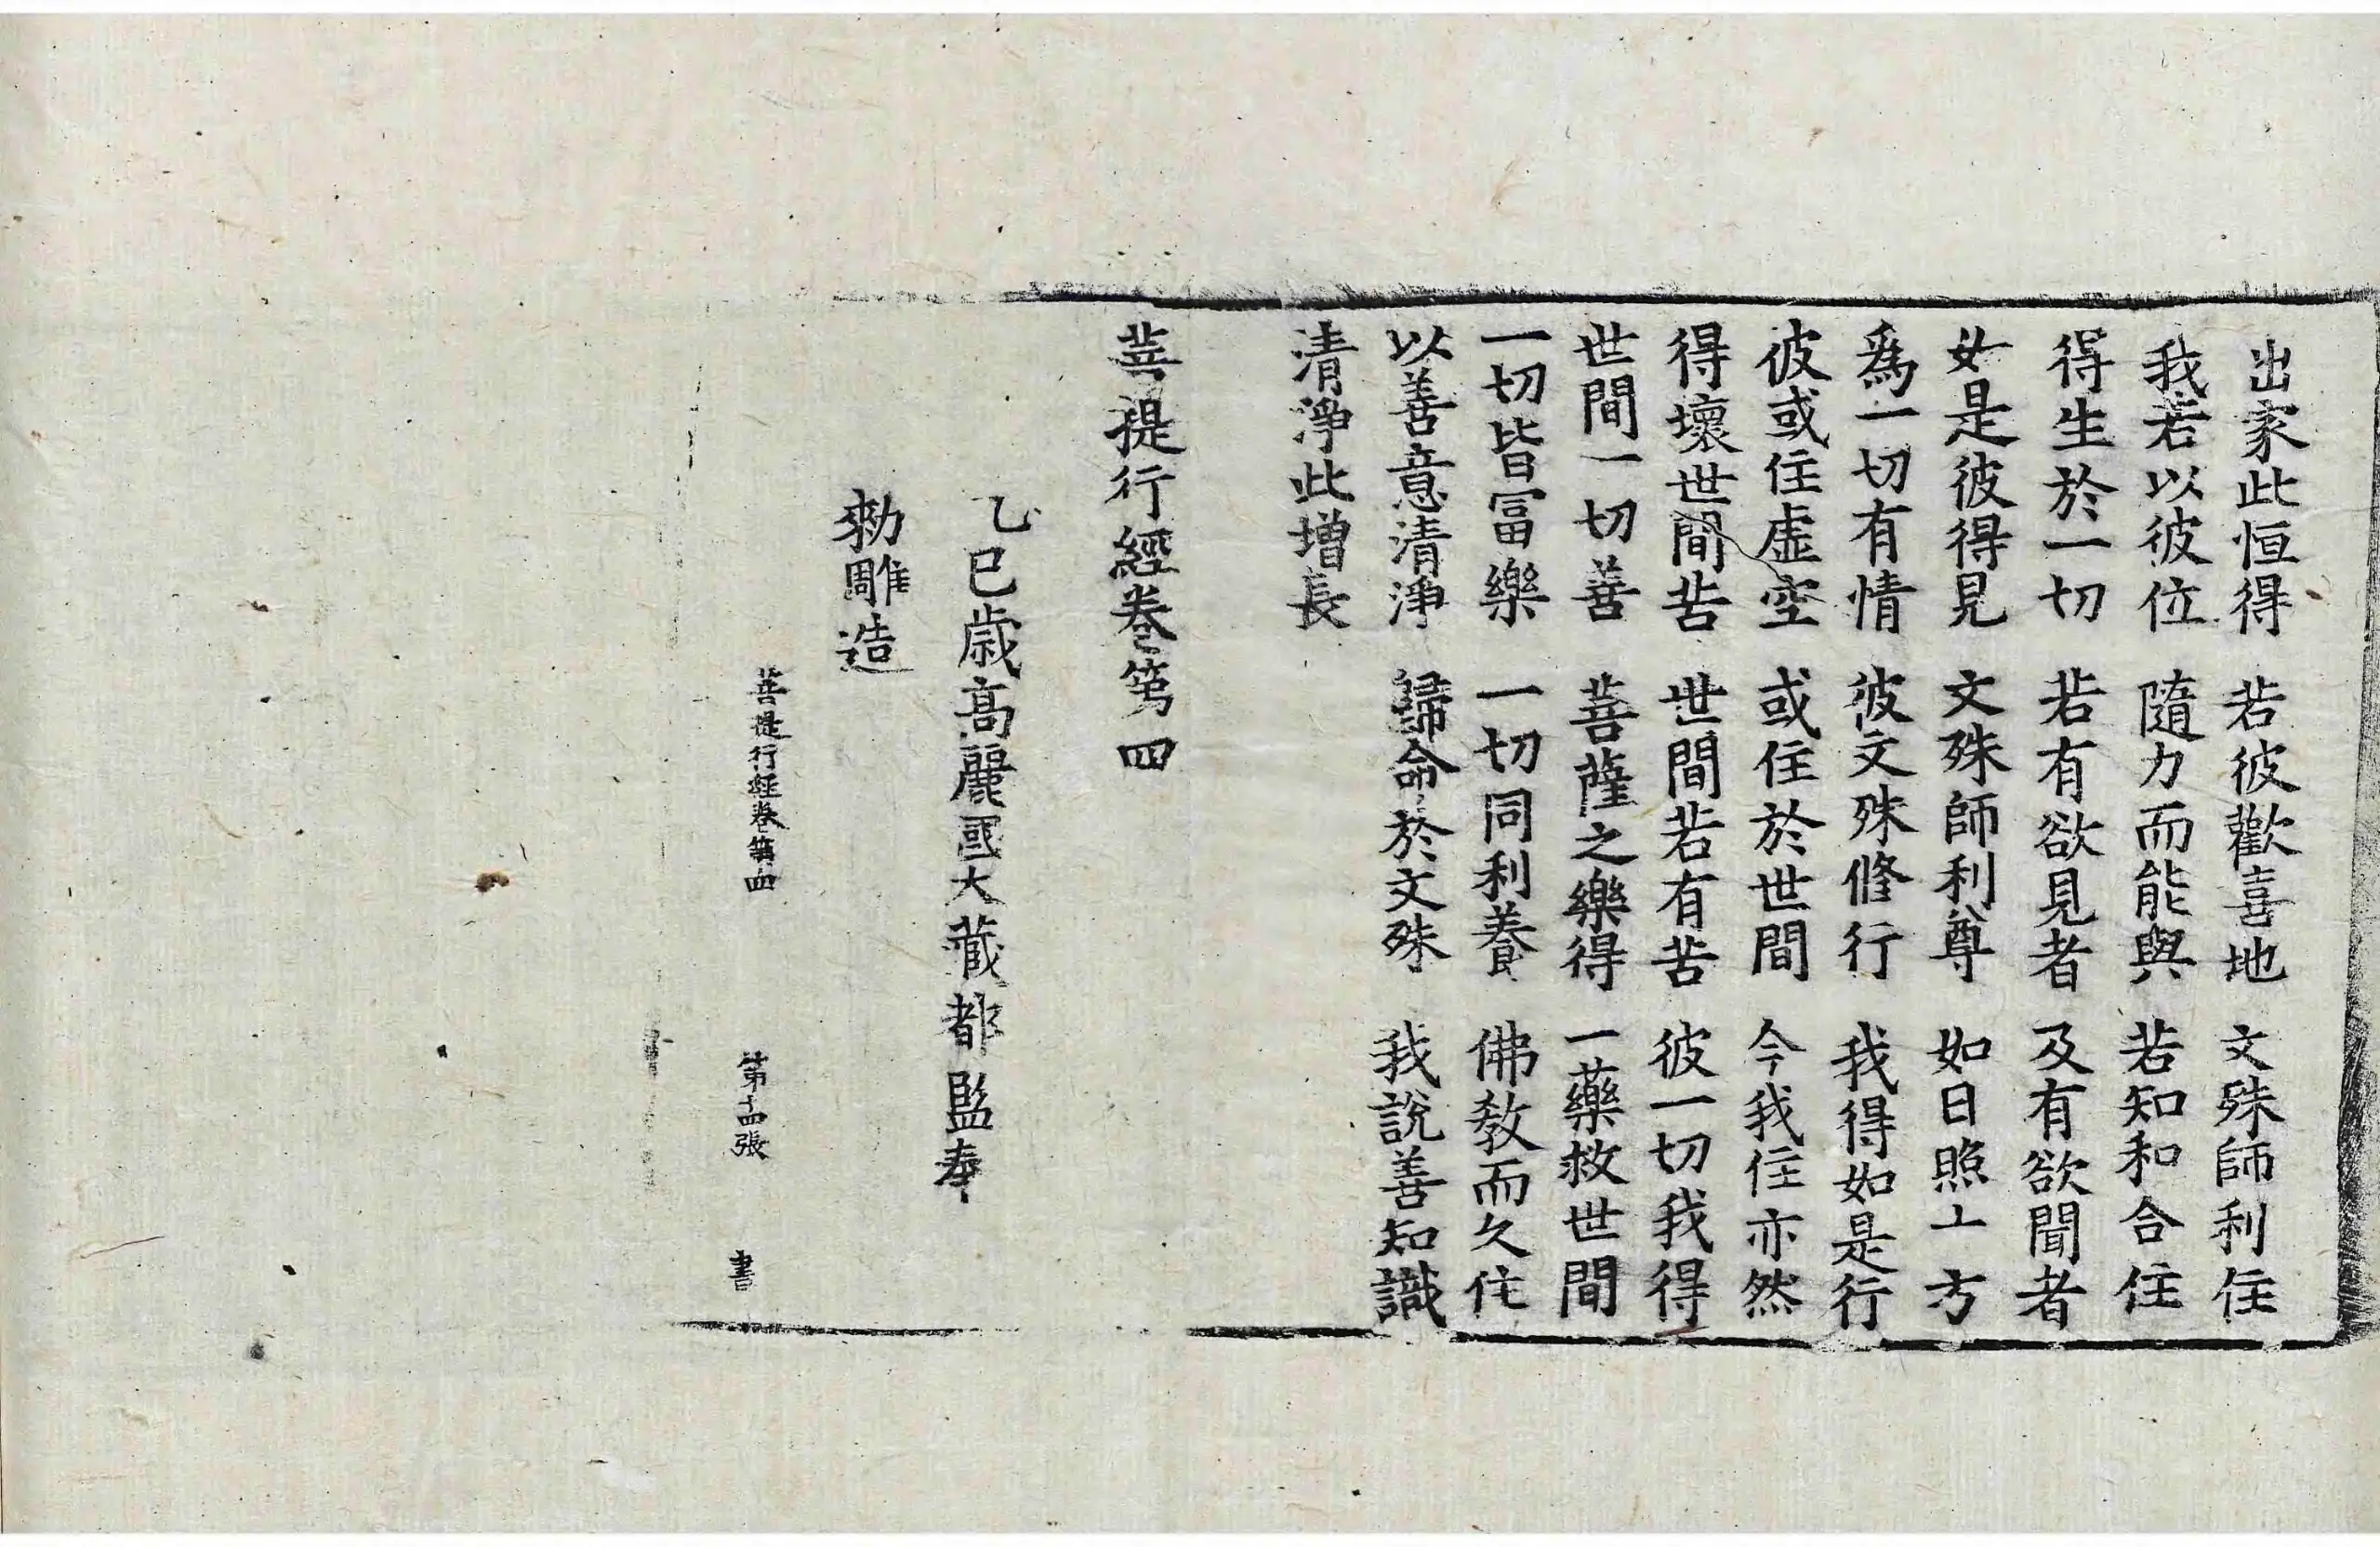 出家此恒得 若彼歡喜地 文殊師利住
我若以彼位 隨力而能與 若知和合住
得生於一切 若有欲見者 及有欲聞者
如是彼得見 文殊師利尊 如日照上方
爲一切有情 彼文殊修行 我得如是行
彼或住虛空 或住於世間 今我住亦然
得壞世間苦 世間若有苦 彼一切我得
世間一切善 菩薩之樂得 一藥救世間
一切皆冨樂 一切同利養 佛教而久住
以善意清淨 歸命於文殊 我說善知識
清淨此增長
菩提行經卷第四
乙巳歳高麗國大藏都監奉
勑雕造
菩提行經卷第四 第十四張 書